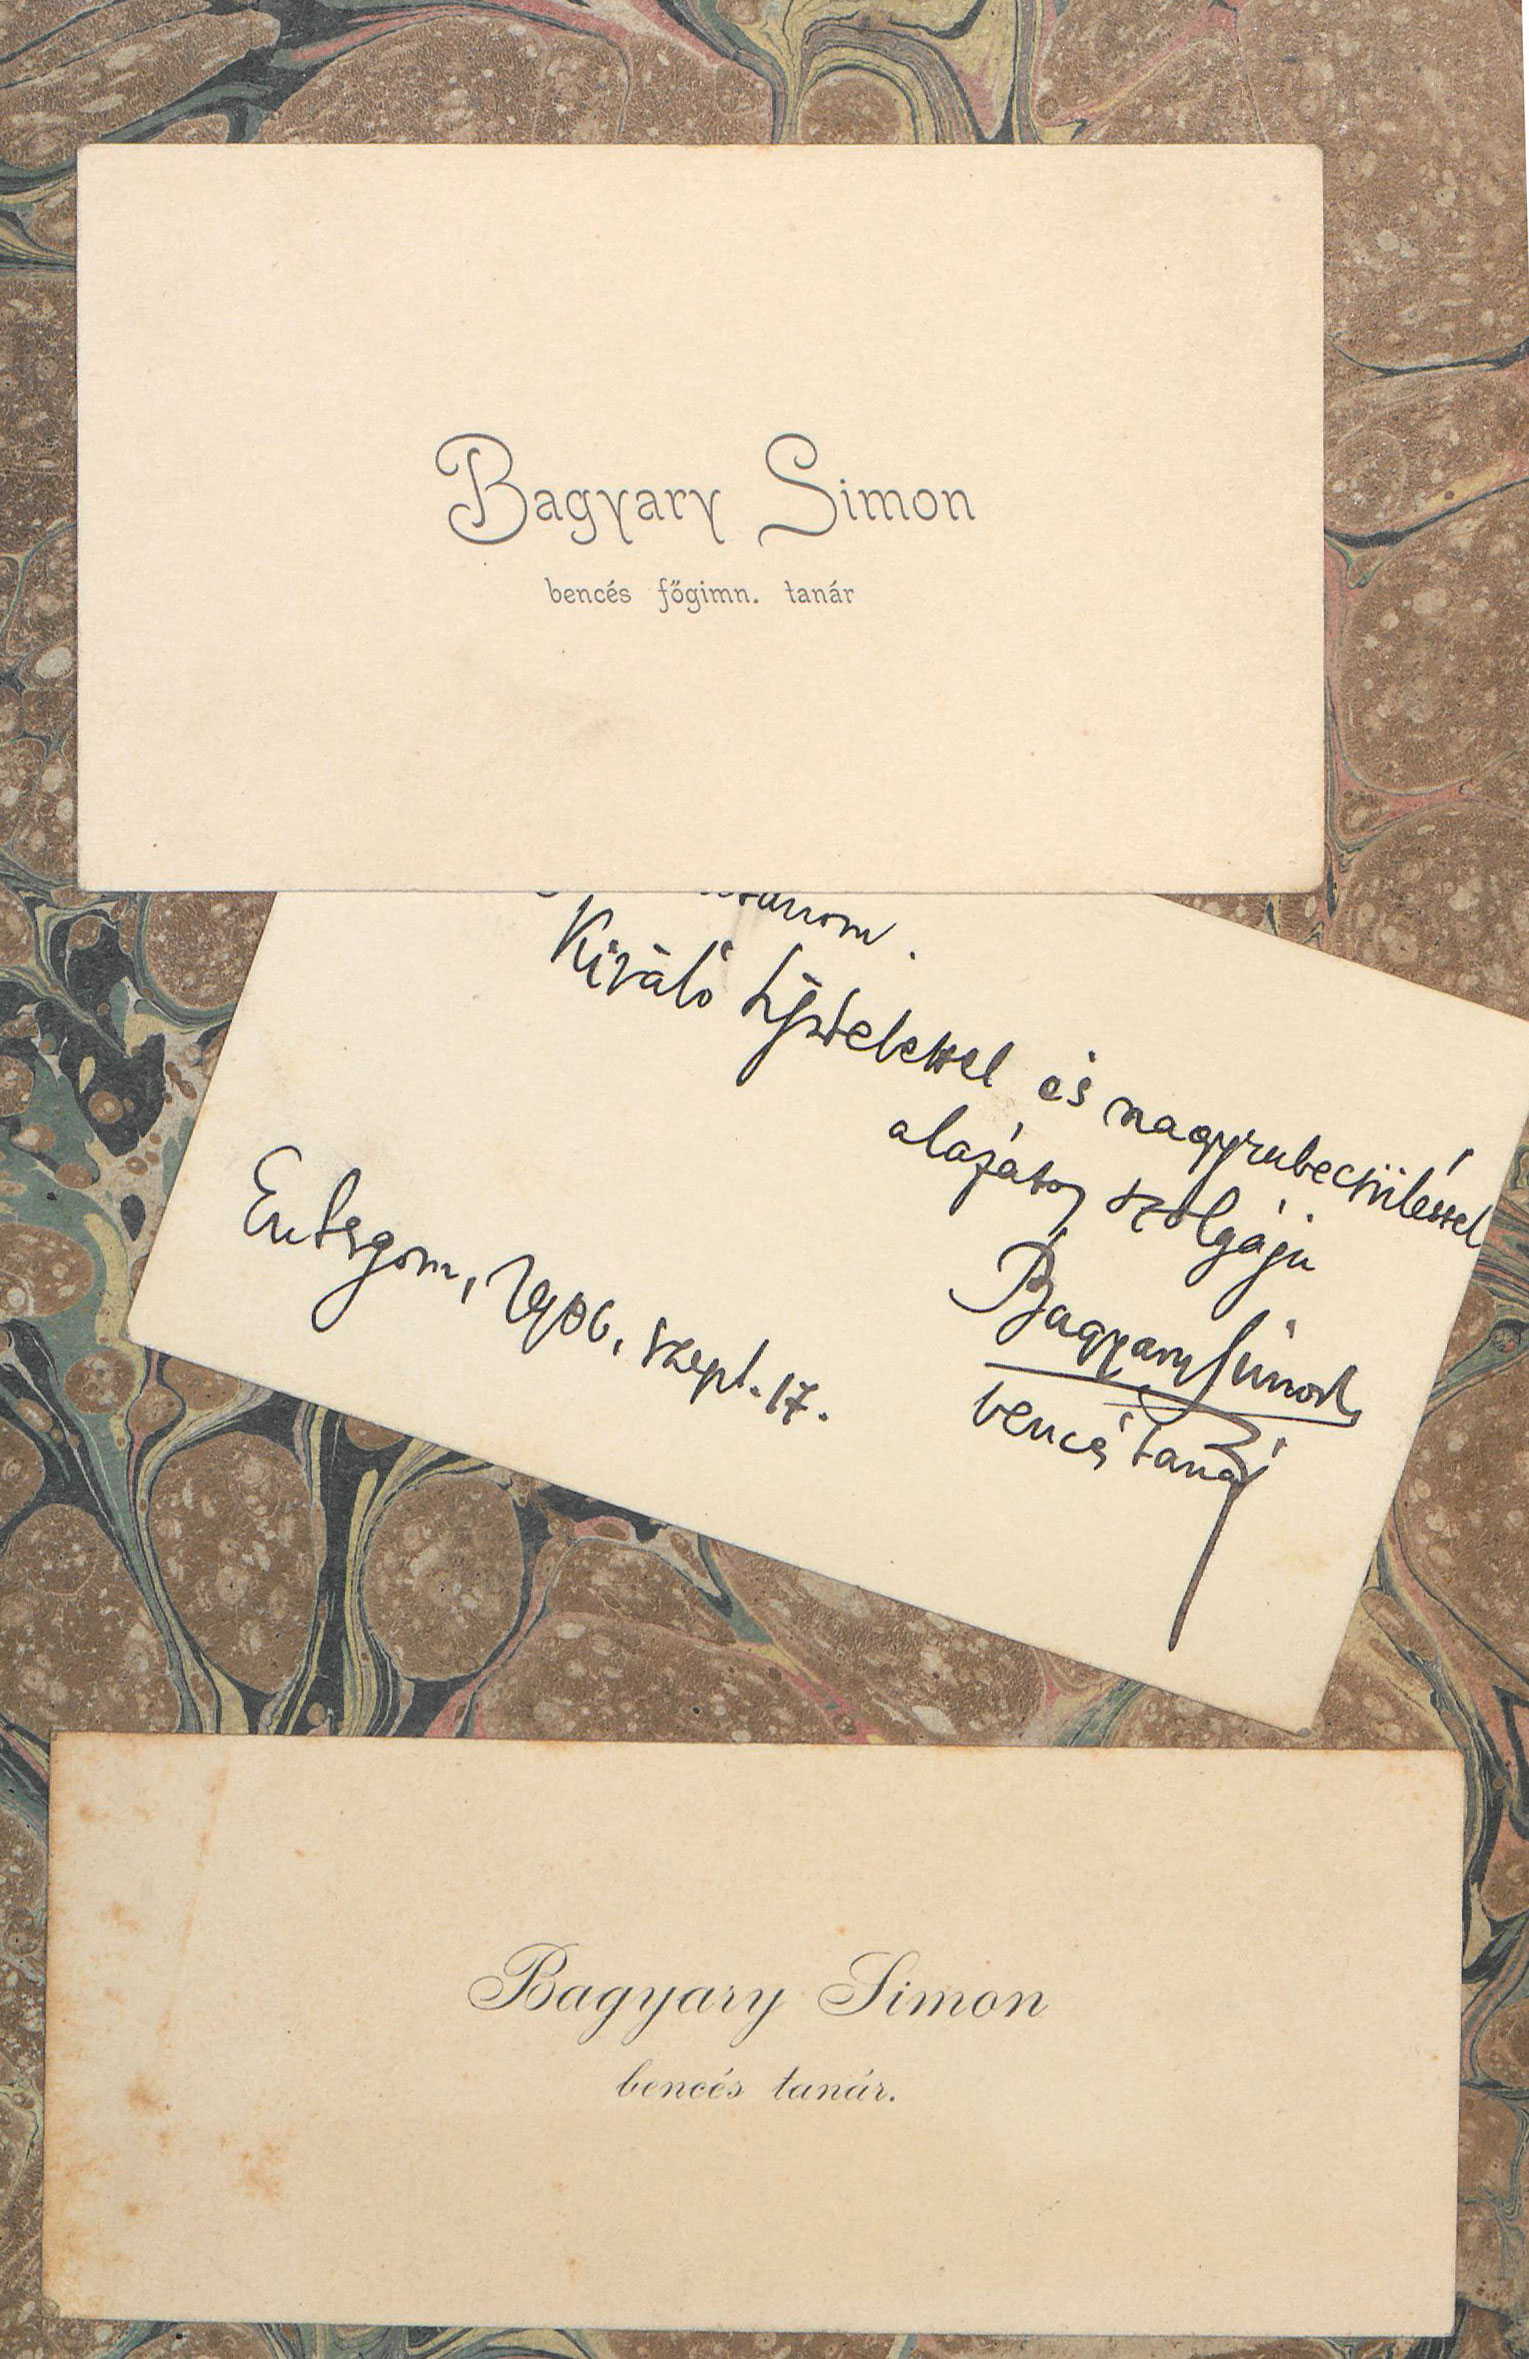 Bagyary Simon
bencés főgimn. tanár
Kiváló tisztelettel és nagyrabecsüléssel
alázatos szolgája
Bagyary Simon
bencés tanár
Esztergom, 1906. szept. 17.
Bagyary Simon
bencés tanár.